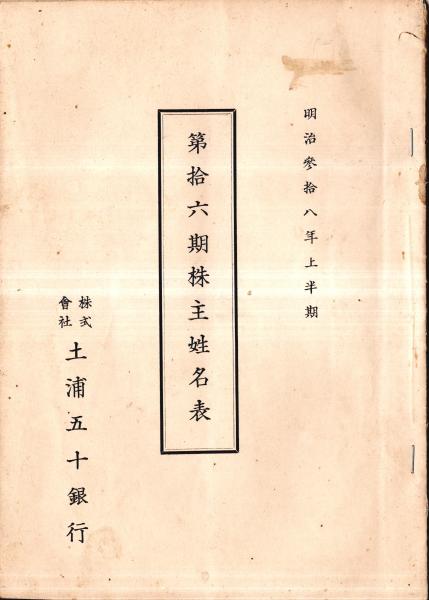 明治參拾八年上半期
第拾六期株主姓名表
株式會社
土浦五十銀行